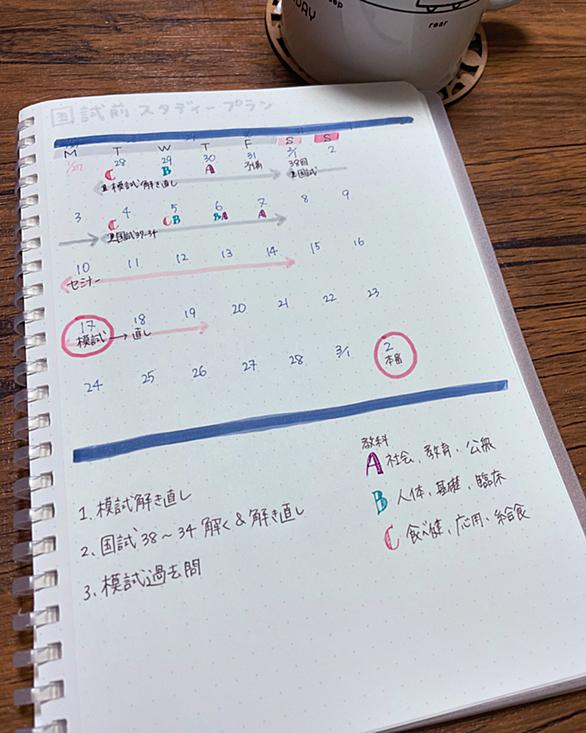 DAY
rear
国試前 スタディープラン
M T W T F S S
1/27 28 29 30 31 2/1 2
C B A 予備 38回
国試
1. 模試解き直し
3 4 5 6 7 8 9
C CB BA A
2. 国試37-34
10 11 12 13 14 15 16
セミナー
17 18 19 20 21 22 23
模試 → 直し
24 25 26 27 28 3/1 2
本番
教科
A 社会、教育、公衆
B 人体、基礎、臨床
C 食べ健、応用、給食
1. 模試解き直し
2. 国試38～34 解く&解き直し
3. 模試過去問